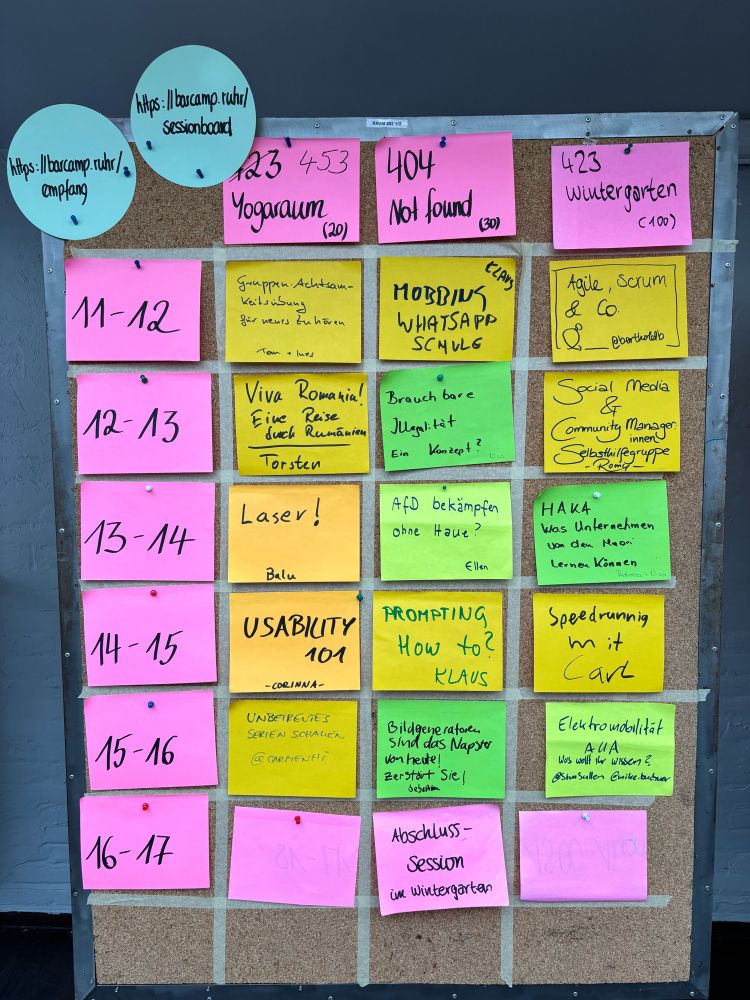 https://barcamp.ruhr/
sessionboard
https://barcamp.ruhr/
empfang
RAUM 453 1/2
423 453
Yogaraum
(20)
404
Not found
(30)
423
Wintergarten
(100)
11-12
Gruppen-Achtsam-
keitsübung
für neues Zuhören
Tom + Ines
KLAUS
MOBBING
WHATSAPP
SCHULE
Agile, Scrum
& Co.
@bertholdb
12-13
Viva Romania!
Eine Reise
durch Rumänien
Torsten
Brauchbare
Illegalität
Ein Konzept?
Social Media
&
Community Manager:
innen
Selbsthilfegruppe
- Romy -
13-14
Laser!
Balu
AfD bekämpfen
ohne Haue?
Ellen
HAKA
Was Unternehmen
von den Maori
Lernen Können
14-15
USABILITY
101
-CORINNA-
PROMPTING
How to?
KLAUS
Speedrunnig
mit
Carl
15-16
UNBETREUTES
SERIEN SCHAUEN
@CARMENHI
Bildgeneratoren
sind das Napster
von heute!
Zerstört Sie!
Sebastian
Elektromobilität
AMA
Was wollt ihr wissen?
16-17
17-18
Abschluss-
Session
im Wintergarten